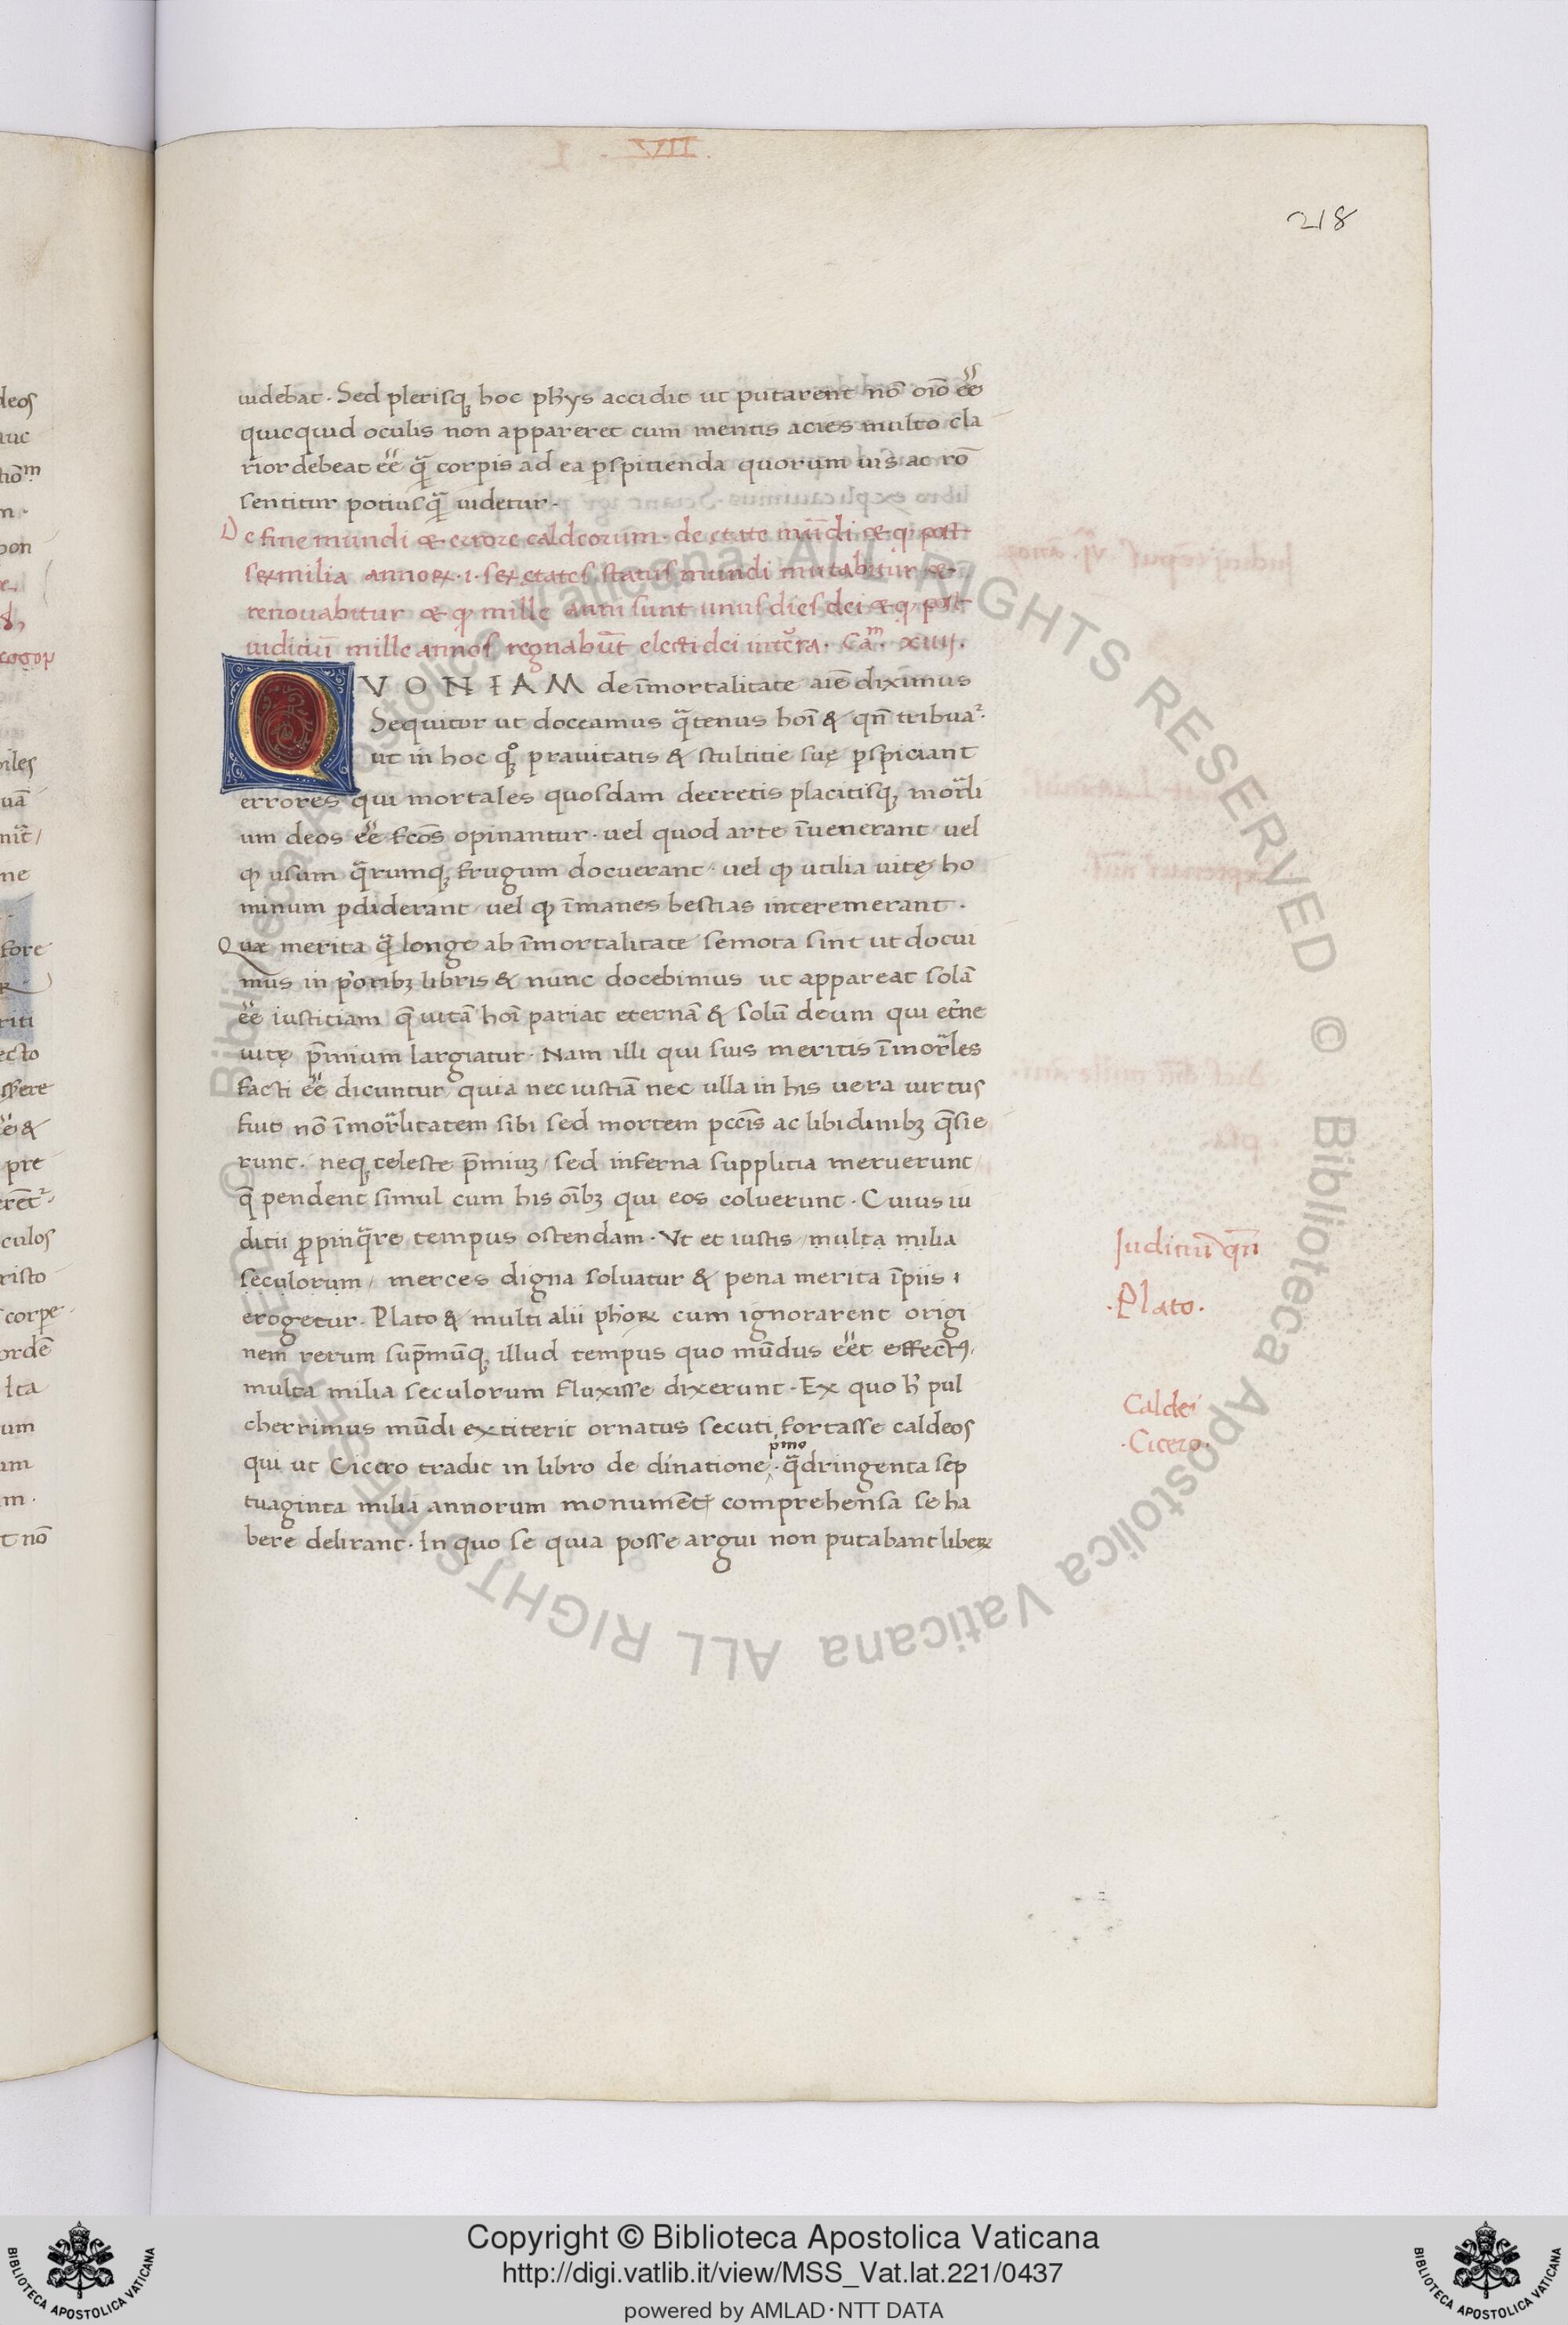 L . VII.
218
uidebat. Sed plerisq; hoc ph̄ys accidit ut putarent nō oīo ēe
quicquid oculis non appareret cum mentis acies multo cla
rior debeat ēe q̄ corpis ad ea p̱spitienda quorum uis ac rō
sentitur potiusq̄ uidetur.
De fine mundi & errore caldeorum. de etate mūdi & q̱ post
sex milia annoꝝ .i. sex etates status mundi mutabitur &
renouabitur & q̱ mille anni sunt unus dies dei & q̱ post
iudiciū mille annos regnabūt electi dei in tēra. Cam. xiiij.
QVONIAM de īmortalitate aīe diximus
Sequitur ut doceamus q̄tenus hoī & qn̄ tribuaᷣ.
ut in hoc q̊; prauitatis & stultitie suę p̱spiciant
errores qui mortales quosdam decretis placitisq; mor̄li
um deos ēe fcōs opinantur. uel quod arte īuenerant uel
q̱ usum q̄rumq; frugum docuerant. uel q̱ utilia uitę ho
minum p̱diderant uel q̱ īmanes bestias interemerant.
Quæ merita q̄ longe ab īmortalitate semota sint ut docui
mus in p̄oribꝫ libris & nunc docebimus ut appareat solā
ēe iusticiam q̄ uitā hoī pariat eternā & solū deum qui et̄ne
uitę p̄mium largiatur. Nam illi qui suis meritis īmor̄les
facti ēe dicuntur quia nec iustiā nec ulla in his uera uirtus
fuit nō īmor̄litatem sibi sed mortem pcc̄is ac libidinibꝫ q̄sie
runt. neq; celeste p̄miuꝫ / sed inferna supplitia meruerunt /
q̄ pendent simul cum his oībꝫ qui eos coluerunt. Cuius iu
ditii ꝓpinq̄re tempus ostendam. Vt et iustis / multa milia
seculorum / merces digna soluatur & pena merita īpiis
erogetur. Plato & multi alii ph̄oꝝ cum ignorarent origi
nem rerum sup̄mūq; illud tempus quo mūdus ēet effectꝰ.
multa milia seculorum fluxisse dixerunt. Ex quo h̄ pul
cherrimus mūdi extiterit ornatus secuti fortasse caldeos
pmo
qui ut Cicero tradit in libro de diuinatione. q̄dringenta sep
tuaginta milia annorum monumēt comprehensa se ha
bere delirant. In quo se quia posse argui non putabant libeꝝ
Juditiū qn̄
.Plato.
Caldei
.Cicero.
Copyright © Biblioteca Apostolica Vaticana
http://digi.vatlib.it/view/MSS_Vat.lat.221/0437
powered by AMLAD·NTT DATA
BIBLIOTECA APOSTOLICA VATICANA
BIBLIOTECA APOSTOLICA VATICANA
© Biblioteca Apostolica Vaticana ALL RIGHTS RESERVED © Biblioteca Apostolica Vaticana ALL RIGHTS RESERVED